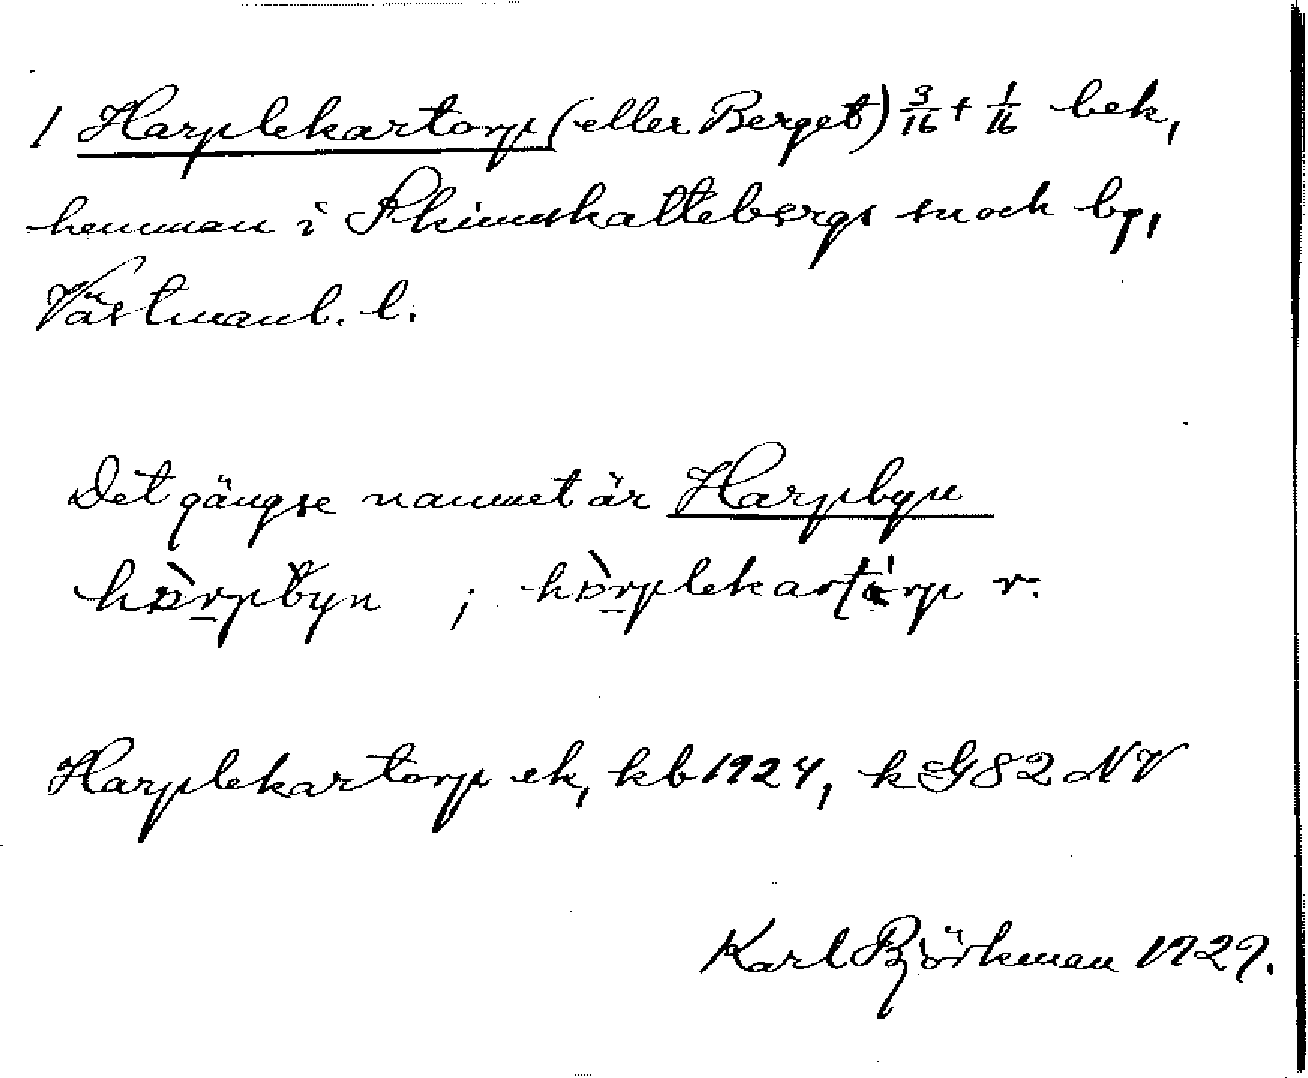 1 Harplekartorp (eller Berget) 3/16 + 1/16 bek,
hemman i Skinnskattebergs sn och bg,
Västmanl. l.
Det gängse namnet är Harpbyn
hàrpbyn ; hàrplekartórp r.
Harplekartorp ek, kb 1924, k G82 NV
Karl Björkman 1929.